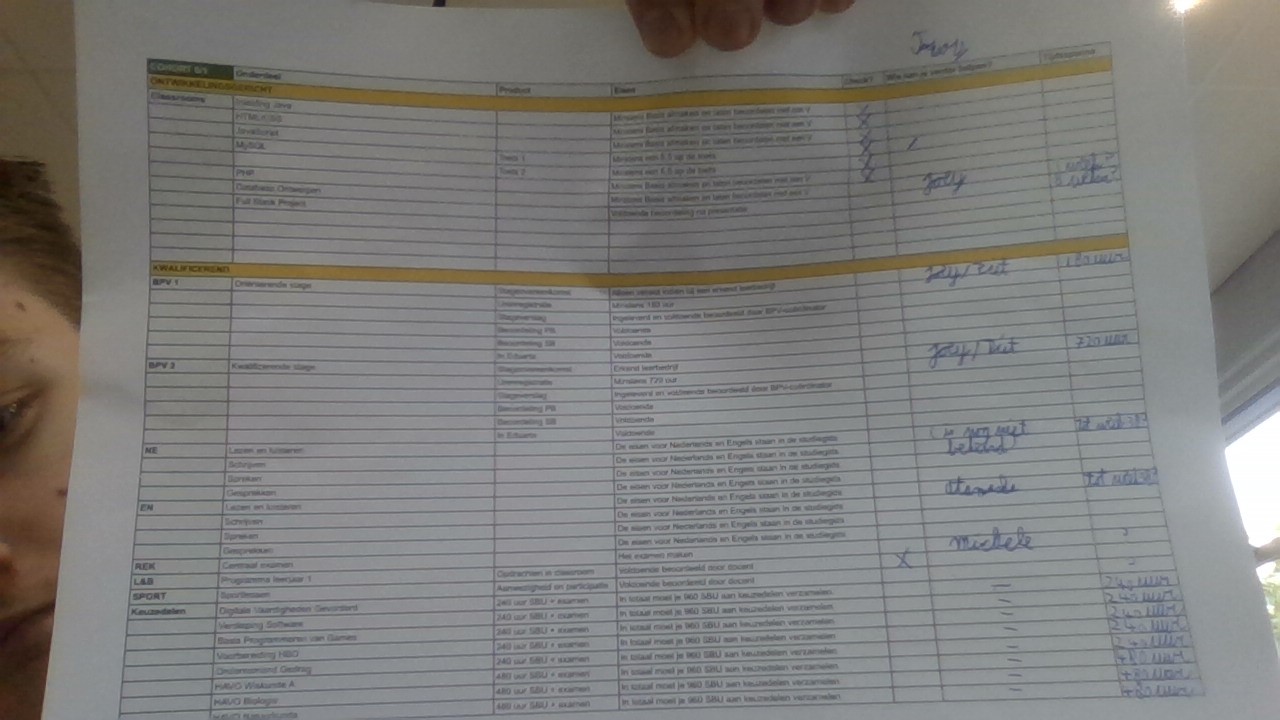 COHORT Onderdeel Product Eisen Check? Wie kan je verder helpen?
ONTWIKKELINGSGERICHT
Classrooms Inleiding Java Minstens Basis afmaken en laten beoordelen met een V
HTML/CSS Minstens Basis afmaken en laten beoordelen met een V
JavaScript Minstens Basis afmaken en laten beoordelen met een V
MySQL Toets 1 Minstens een 5.5 op de toets
Toets 2 Minstens een 5.5 op de toets
PHP Minstens Basis afmaken en laten beoordelen met een V
Database Ontwerpen Minstens Basis afmaken en laten beoordelen met een V
Full Stack Project Voldoende beoordeling na presentatie
KWALIFICEREND
BPV 1 Oriënterende stage Stageovereenkomst
Urenregistratie Minstens 180 uur 180 uur
Stageverslag Ingeleverd en voldoende beoordeeld door BPV-coördinator
Beoordeling PB Voldoende
Beoordeling SB Voldoende
In Eduarte Voldoende
BPV 2 Kwalificerende stage Stageovereenkomst Erkend leerbedrijf 720 uur
Urenregistratie Minstens 720 uur
Stageverslag Ingeleverd en voldoende beoordeeld door BPV-coördinator
Beoordeling PB Voldoende
Beoordeling SB Voldoende
In Eduarte Voldoende
nog niet bekend
NE Lezen en luisteren De eisen voor Nederlands en Engels staan in de studiegids
Schrijven De eisen voor Nederlands en Engels staan in de studiegids
Spreken De eisen voor Nederlands en Engels staan in de studiegids
Gesprekken De eisen voor Nederlands en Engels staan in de studiegids
EN Lezen en luisteren De eisen voor Nederlands en Engels staan in de studiegids
Schrijven De eisen voor Nederlands en Engels staan in de studiegids
Spreken De eisen voor Nederlands en Engels staan in de studiegids
Gesprekken De eisen voor Nederlands en Engels staan in de studiegids
REK Centraal examen Het examen maken Michele ?
L&B Programma leerjaar 1 Opdrachten in classroom Voldoende beoordeeld door docent X
SPORT Sportlessen Aanwezigheid en participatie Voldoende beoordeeld door docent
Keuzedelen Digitale Vaardigheden Gevorderd 240 uur SBU + examen In totaal moet je 960 SBU aan keuzedelen verzamelen - 240 uur
Verdieping Software 240 uur SBU + examen In totaal moet je 960 SBU aan keuzedelen verzamelen - 240 uur
Basis Programmeren van Games 240 uur SBU + examen In totaal moet je 960 SBU aan keuzedelen verzamelen - 240 uur
Voorbereiding HBO 240 uur SBU + examen In totaal moet je 960 SBU aan keuzedelen verzamelen - 240 uur
Ondernemend Gedrag 240 uur SBU + examen In totaal moet je 960 SBU aan keuzedelen verzamelen - 240 uur
HAVO Wiskunde A 480 uur SBU + examen In totaal moet je 960 SBU aan keuzedelen verzamelen - 480 uur
HAVO Biologie 480 uur SBU + examen In totaal moet je 960 SBU aan keuzedelen verzamelen - 480 uur
HAVO Natuurkunde 480 uur SBU + examen In totaal moet je 960 SBU aan keuzedelen verzamelen - 480 uur